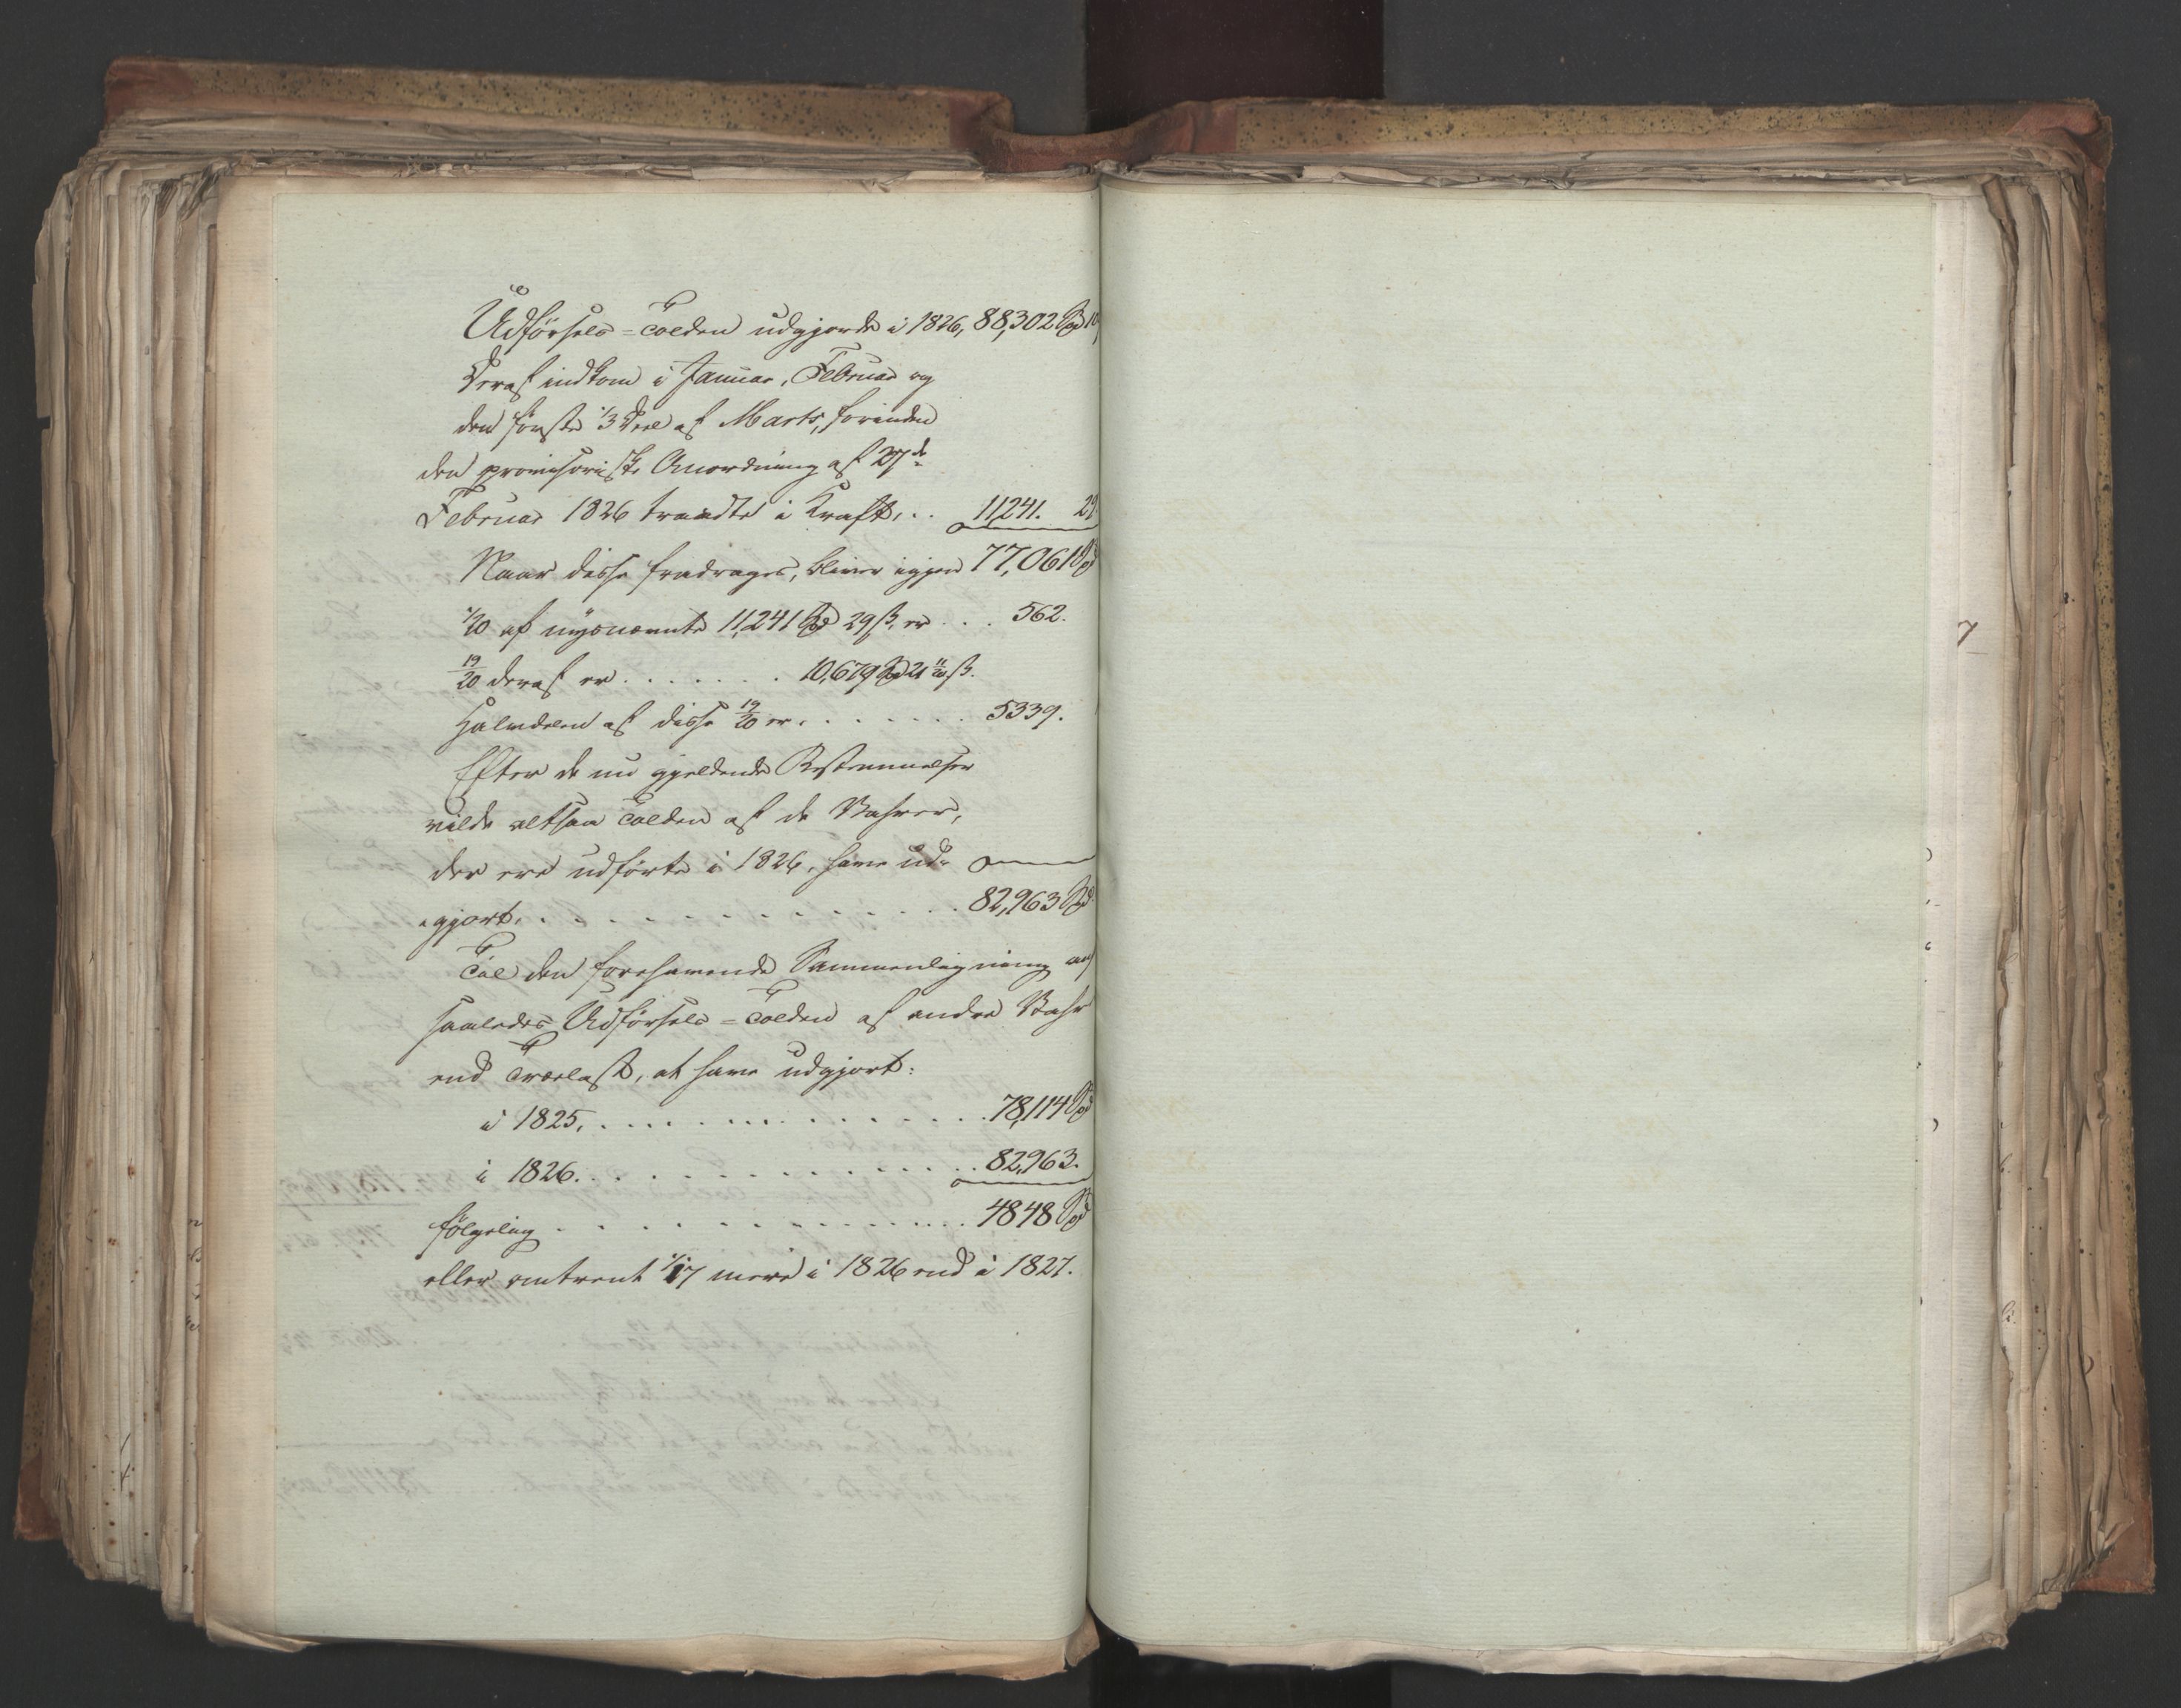 Udførsels=Tolden udgjorde i 1826, 88,302 Spd 10
Deraf indkom i Januar, Februar og
den første 1/3 Deel af Marts, forinden
den provisoriske Anordning af 27de
Februar 1826 traadte i Kraft, . . 11,241. 29
Naar disse fradrages, bliver igjen 77,061 Spd
1/20 af nysnævnte 11,241 Spd 29 ß. er . . . 562.
19/20 deraf er . . . . . . . 10,679 Spd 21 11/20 ß.
Halvdelen af disse 19/20 er . . . . . . . 5339.
Efter de nu gjeldende Bestemmelser
vilde altsaa Tolden af de Vahrer,
der ere udførte i 1826, have ud=
=gjort, . . . . . . . . . . . . . . 82,963 Spd
Til den forehavende Sammenligning
saaledes Udførsels=Tolden af andre Vahr
end Trælast, at have udgjort:
i 1825, . . . . . . . . . . . . . . 78,114 Spd
i 1826. . . . . . . . . . . . . . 82,963.
følgelig . . . . . . . . . . . . . . 4848 Spd
eller omtrent 1/17 mere i 1826 end i 1827.